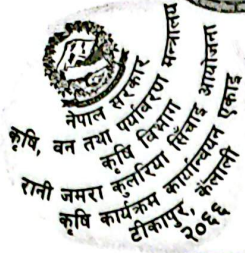 नेपाल सरकार
कृषि, वन तथा पर्यावरण मन्त्रालय
कृषि विभाग
रानी जमरा कुलरिया सिँचाइ आयोजना
कृषि कार्यक्रम कार्यान्वयन एकाइ
टीकापुर, कैलाली
२०६६